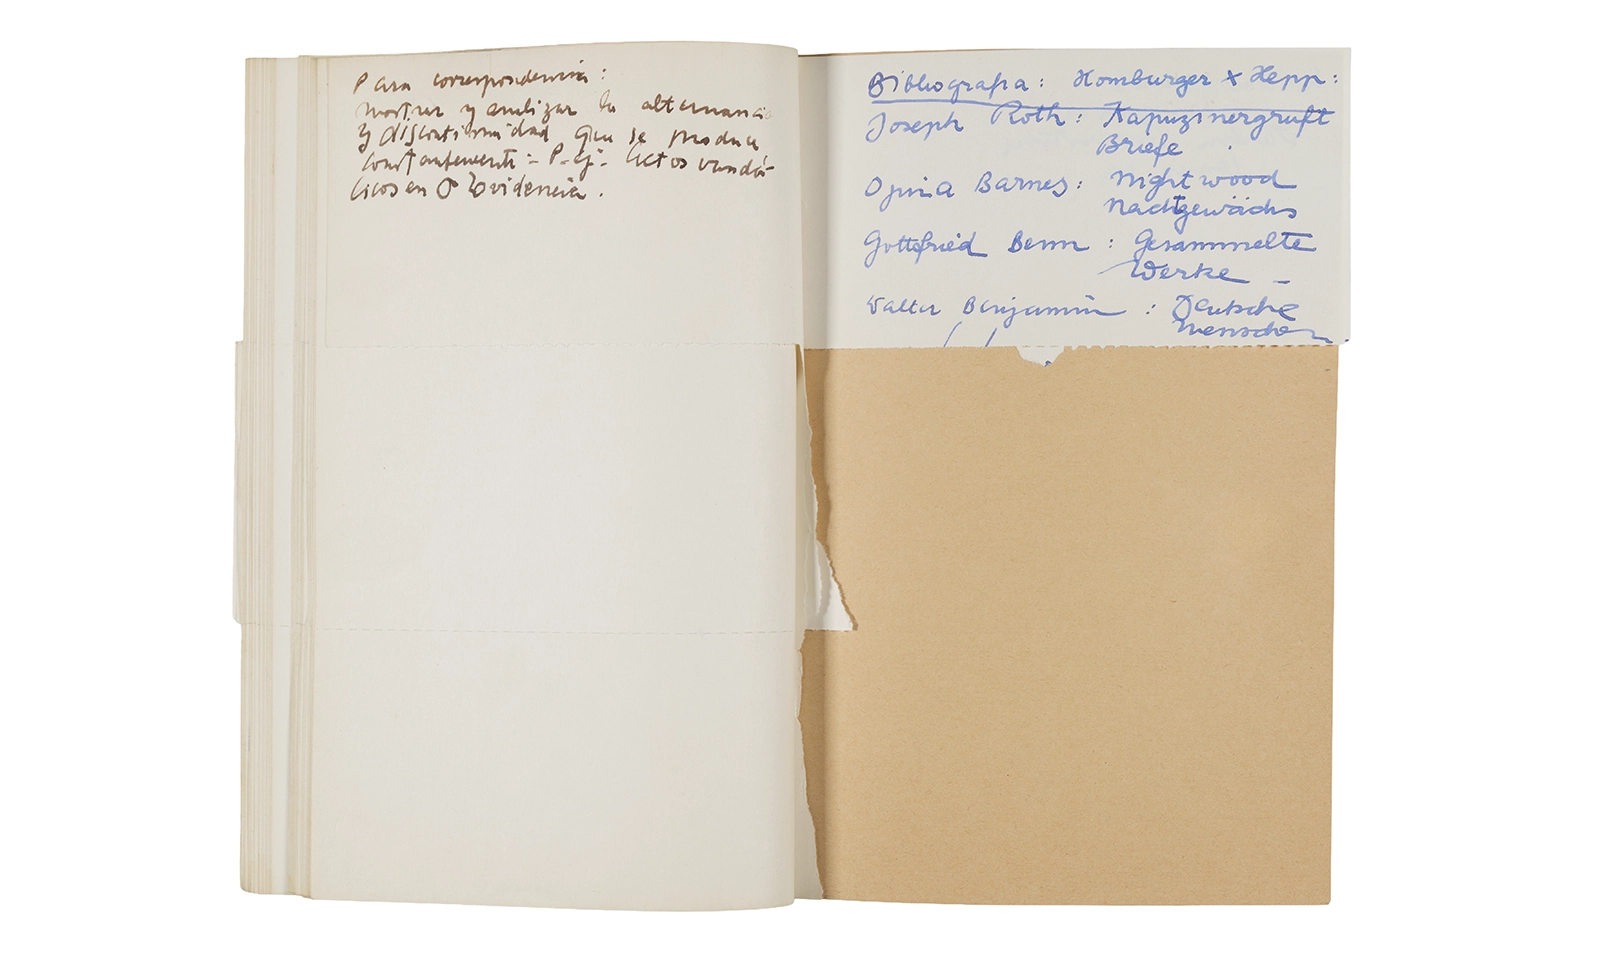 Para correspondencia:
mostrar y analizar la alternancia
y discontinuidad que se produce
constantemente - P. ej. Actos vandá-
licos en Providencia.
Bibliografia: Homburger + Hepp:
Joseph Roth: Kapuzinergruft
Briefe
Djuna Barnes: Nightwood
Nachtgewächs
Gottfried Benn: Gesammelte
Werke -
Walter Benjamin: Deutsche
Menschen